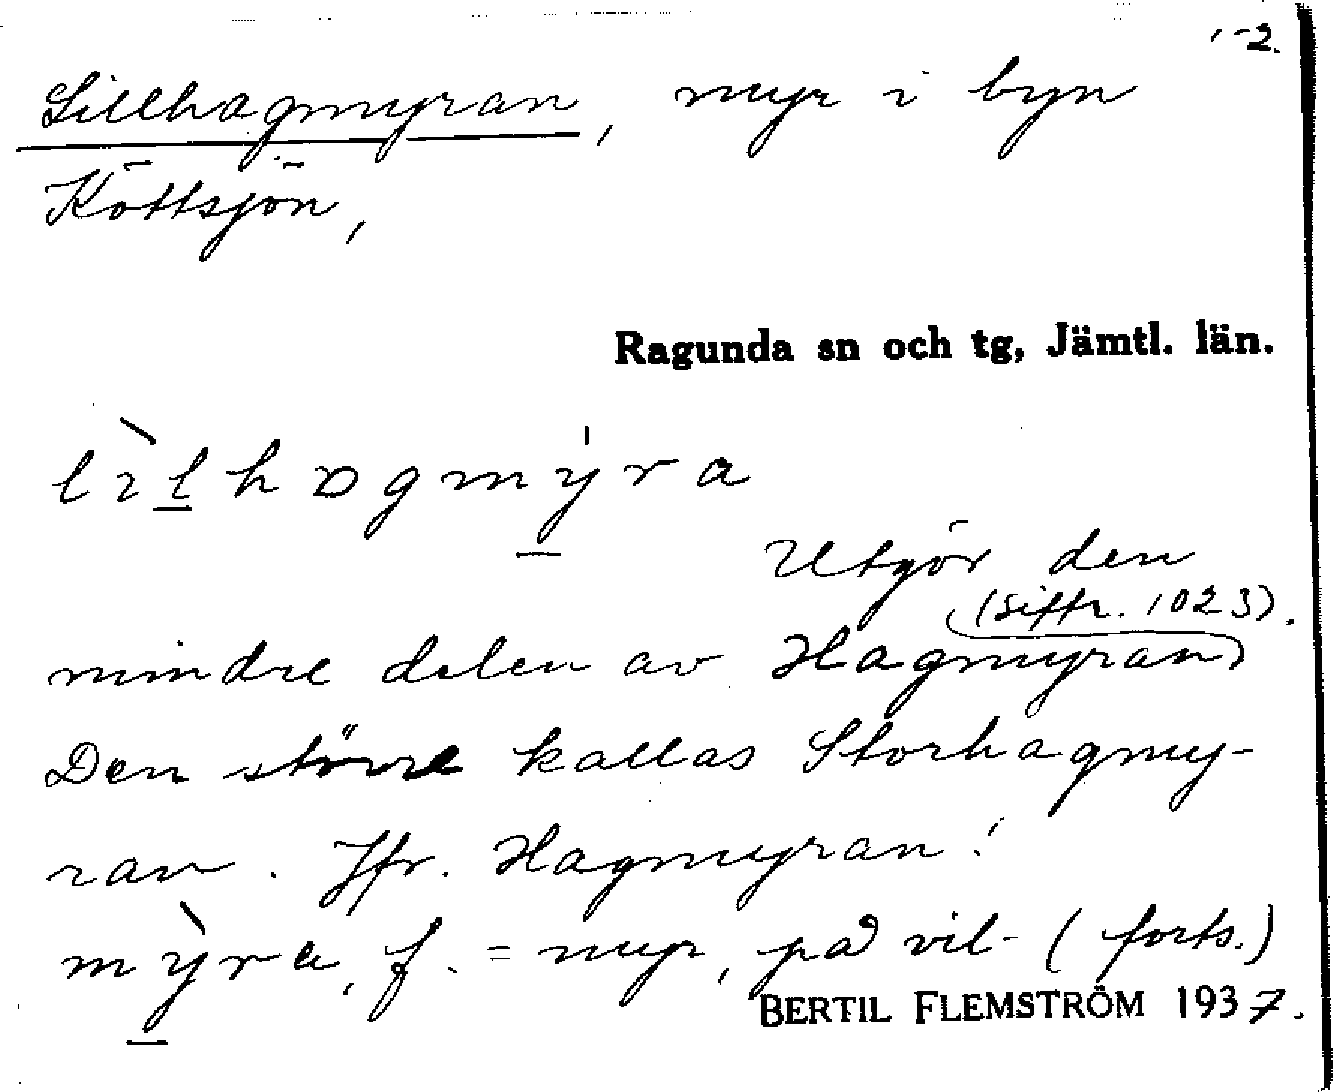 1-2.
Lillhagmyran, myr i byn
Köttsjön,
Ragunda sn och tg, Jämtl. län.
lìlhɒgmýra
Utgör den
(siffr. 1023).
mindre delen av Hagmyran
Den större kallas Storhagmy-
ran. Jfr. Hagmyran!
mỳra, f. = myr, på vil- (forts.)
BERTIL FLEMSTRÖM 1937.